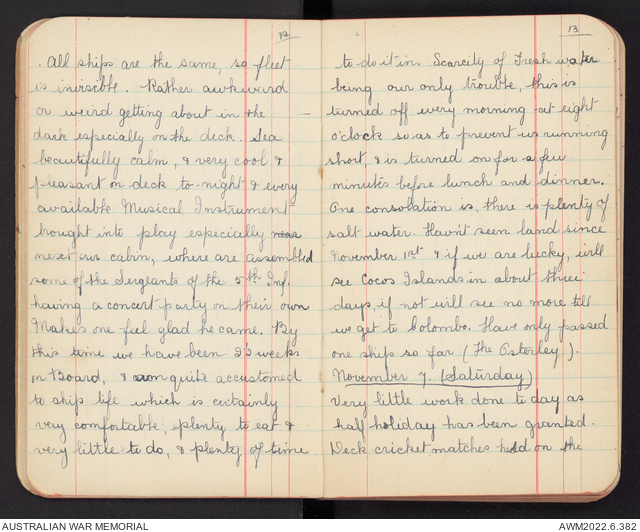 12
. All ships are the same, so fleet
is invisible. Rather awkward
or weird getting about in the
dark especially on the deck. Sea
beautifully calm, & very cool &
pleasant on deck to-night & every
available Musical Instrument
bought into play especially near
next our cabin, where are assembled
some of the Sergeants of the 5th Inf.
having a concert party on their own
Makes one feel glad he came. By
this time we have been 2½ weeks
on Board, & am quite accustomed
to ship life which is certainly
very comfortable, plenty to eat &
very little to do, & plenty of time
13
to do it in. Scarcity of Fresh water
being our only trouble, this is
turned off every morning at eight
o'clock so as to prevent us running
short, & is turned on for a few
minutes before lunch and dinner.
One consolation is, there is plenty of
salt water. Havn't seen land since
November 1st & if we are lucky, will
see Cocos Islands in about three
days, if not will see no more till
we get to Colombo. Have only passed
one ships so far (The Osterley).
November 7. (Saturday)
Very little work done to day as
half holiday has been granted.
Deck cricket matches held on the
AUSTRALIAN WAR MEMORIAL
AWM2022.6.382